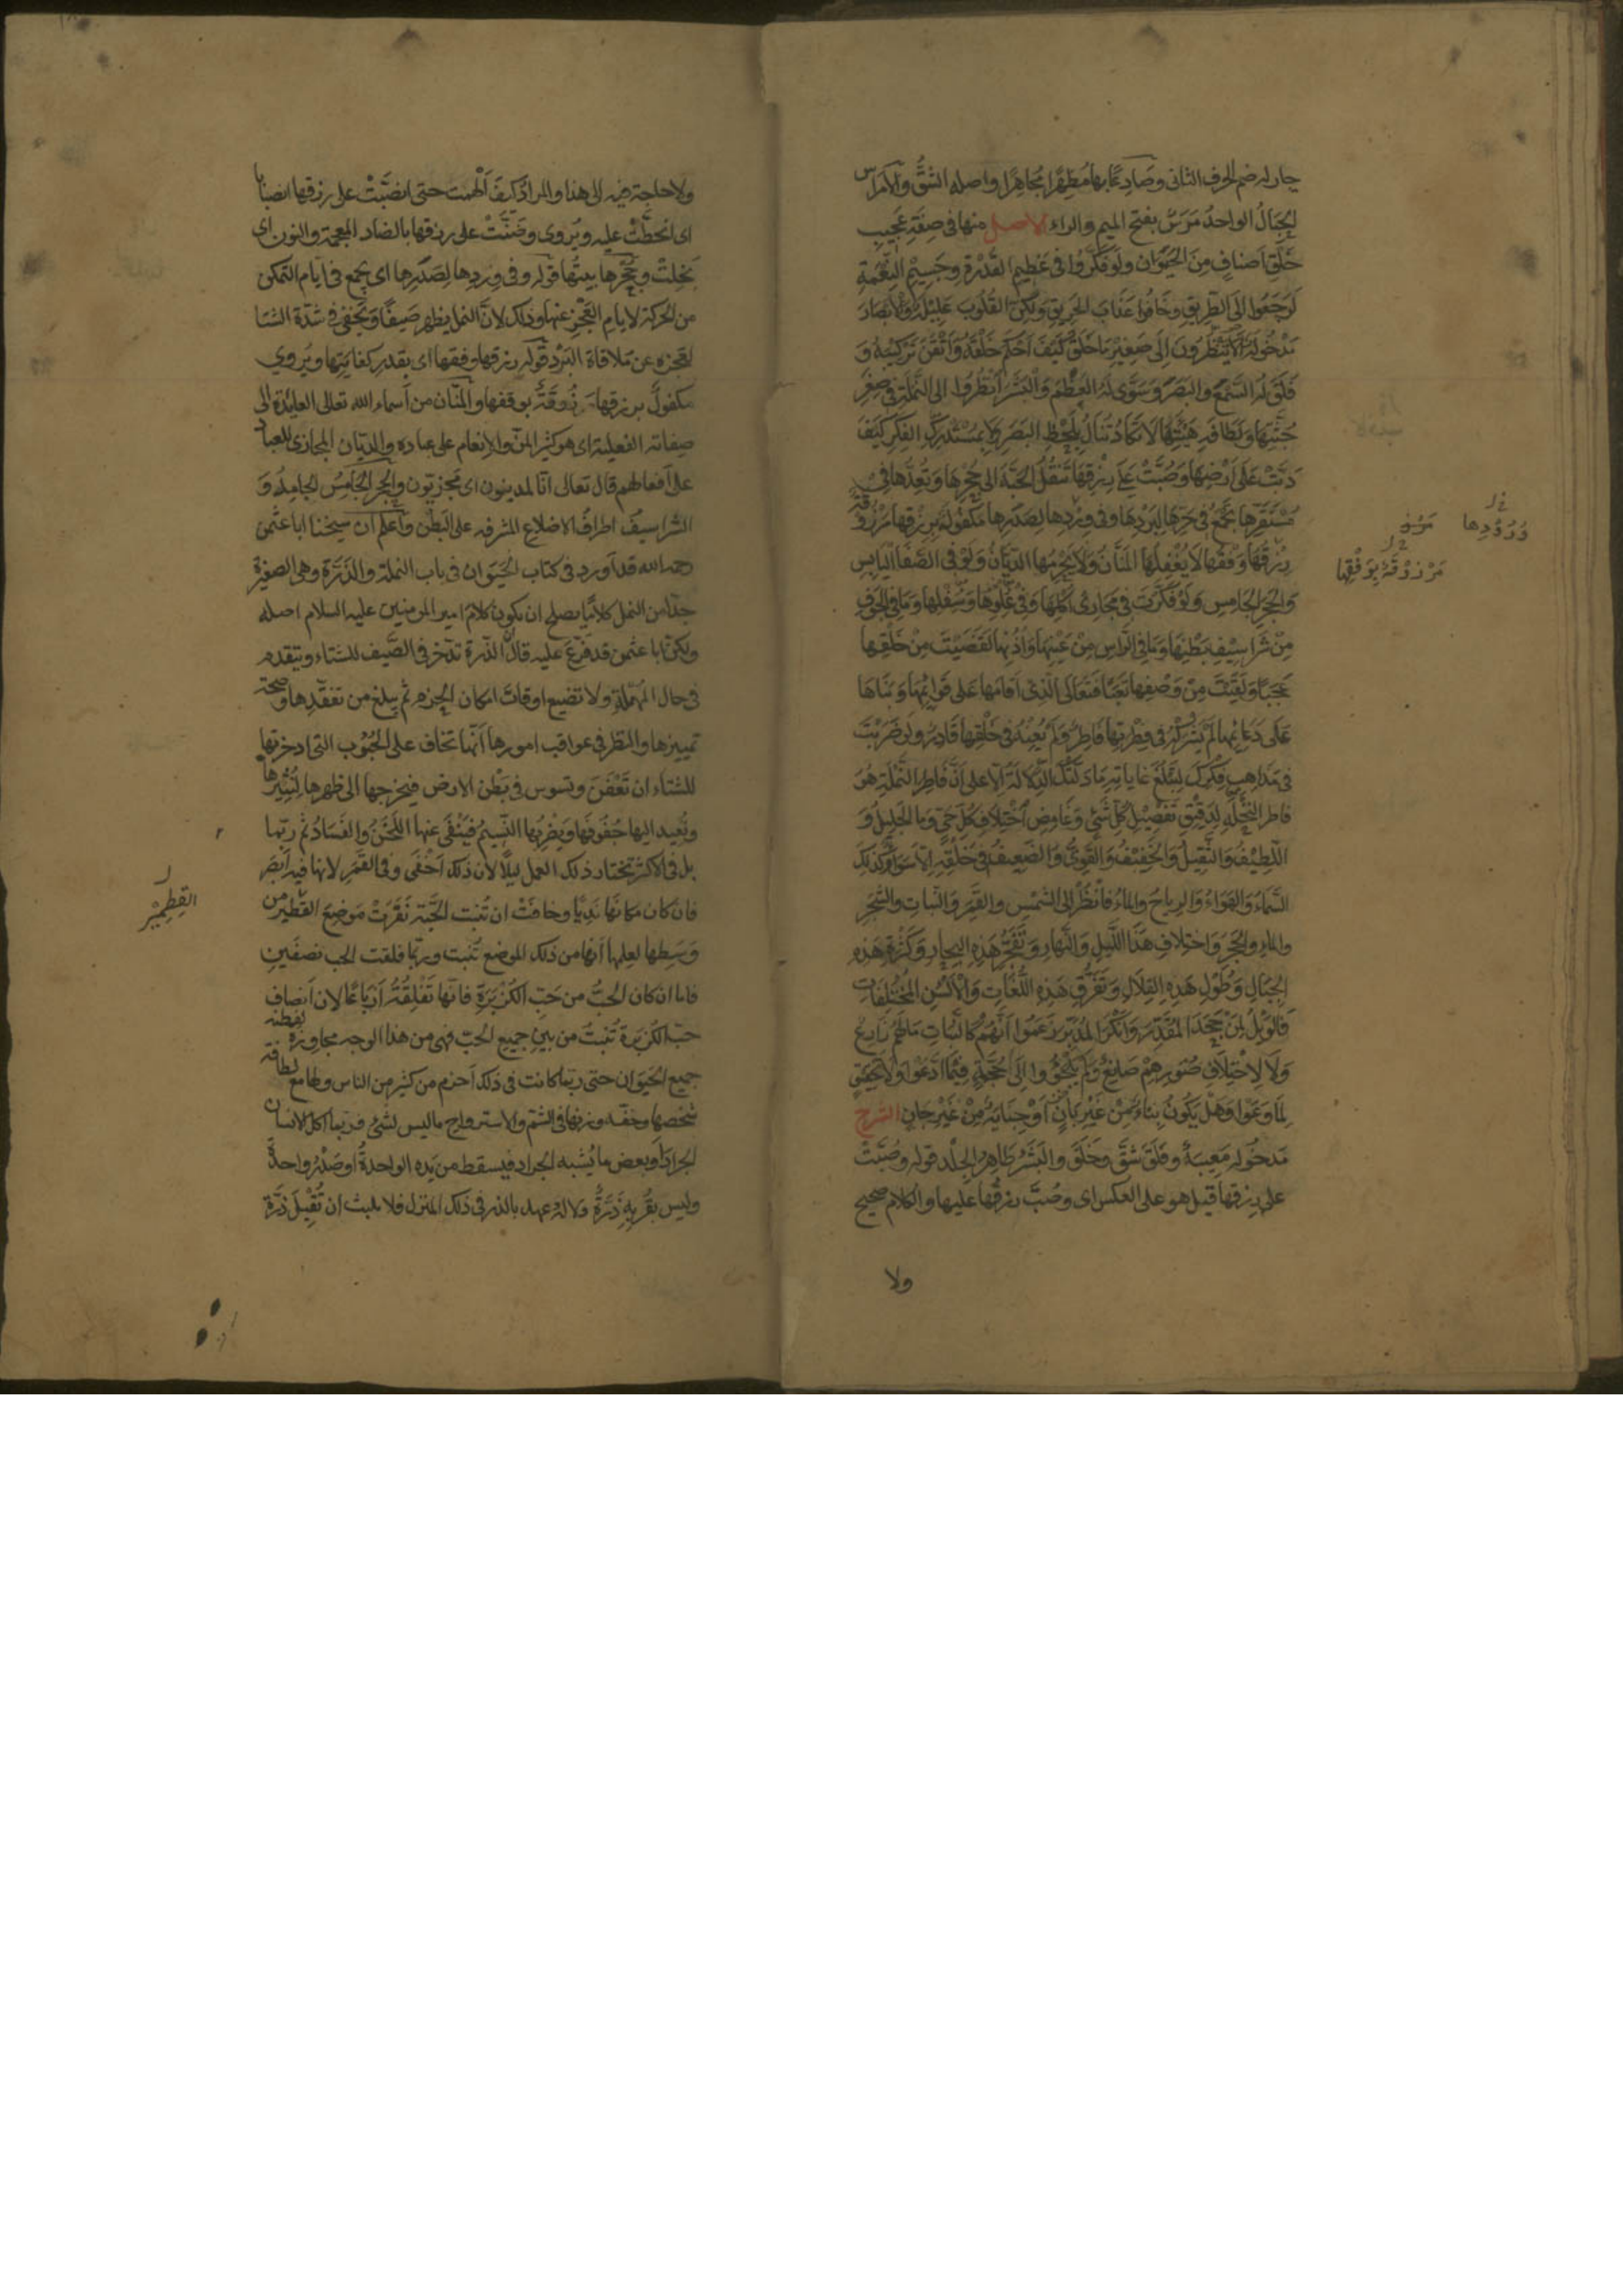 جاز له ضم الحرف الثانى وصَادِعًا بهما مُظهِرًا مُجاهِرًا واصله الشقُّ والامراس
الحِبَالُ الواحدُ مَرَسٌ بفتح الميم والراء الاصل منها فى صِفَةِ عَجِيبِ
خَلْقِ اَصنافٍ مِنَ الحَيَوَانِ وَلَو فَكَّرُوا فى عَظيمِ القُدْرَةِ وجَسِيْمِ النِّعْمَةِ
لَرَجَعُوا الَى الطَّرِيقِ وخَافُوا عَذَابَ الحَرِيقِ وَلكِنَّ القُلُوبَ عَلِيْلَةٌ وَالأبْصَارَ
مَدْخُولَةٌ اَلَا يَنْظُرُونَ اِلَى صَغِيْرِ مَا خَلَقَ كَيْفَ اَحْكَمَ خَلْقَهُ وَاَتْقَنَ تَرْكِيْبَهُ وَ
فَلَقَ لَهُ السَّمْعَ والبَصَرَ وَسَوَّى لَهُ العَظْمَ وَالْبَشَرَ اُنْظُرُوا الى النَّمْلَةِ فى صِغَرِ
جُثَّتِهَا وَلَطَافَةِ هَيْئَتِهَا لَا تَكَادُ تُنَالُ بِلَحْظِ البَصَرِ وَلَا بِمُسْتَدْرَكِ الفِكَرِ كَيْفَ
دَبَّتْ عَلَى اَرْضِهَا وَصُبَّتْ عَلَى رِزْقِهَا تَنْقُلُ الحَبَّةَ الى جُحْرِهَا وَتُعِدُّهَا فِى
مُسْتَقَرِّهَا تَجْمَعُ فى حَرِّهَا لِبَرْدِهَا وفى وِرْدِهَا لِصَدَرِهَا مَكْفُولَةٌ بِرِزْقِهَا مَرْزُوقَةٌ
رِزْقُهَا وَفْقَهَا لَا يُغْفِلُهَا المَنَّانُ وَلَا يَحْرِمُهَا الدَّيَّانُ وَلَوْ فى الصَّفَا اليَابِسِ
وَالحَجَرِ الجَامِسِ وَلَوْ فَكَّرْتَ فِى مَجَارِى اُكُلِهَا وَفِى عُلْوِهَا وَسُفْلِهَا وَمَا فى الجَوْفِ
مِنْ شَرَاسِيْفِ بَطْنِهَا وَمَا فِى الرَّاسِ مِنْ عَيْنِهَا وَاُذُنِهَا لَقَضَيْتَ مِنْ خَلْقِهَا
عَجَبًا وَلَقِيْتَ مِنْ وَصْفِهَا تَعَبًا فَتَعَالَى الَّذِى اَقَامَهَا عَلَى قَوَائِمِهَا وَبَنَاهَا
عَلَى دَعَائِمِهَا لَمْ يَشْرَكْهُ فى فِطْرَتِهَا فَاطِرٌ وَلَمْ يُعِنْهُ فى خَلْقِهَا قَادِرٌ وَلَو ضَرَبْتَ
فى مَذَاهِبِ فِكْرِكَ لِتَبْلُغَ غَايَاتِهِ مَا دَلَّتْكَ الدَّلَالَةُ اِلَّا على اَنَّ فَاطِرَ النَّمْلَةِ هُوَ
فاطر النَّخْلَةِ لِدَقِيْقِ تَفْصِيْلِ كُلِّ شَىْءٍ وَغَامِضِ اخْتِلَافِ كُلِّ حَىٍّ وَمَا الجَلِيْلُ وَ
اللَّطِيْفُ وَالثَّقِيلُ وَالخَفِيْفُ وَالقَوِىُّ وَالضَّعِيْفُ فى خَلْقِهِ اِلَّا سَوَاءٌ وَكَذَلِكَ
السَّمَاءُ وَالهَوَاءُ وَالرِيَاحُ وَالمَاءُ فانْظُرْ الى الشَّمْسِ والقَمَرِ وَالنَّبَاتِ والشَّجَرِ
والماءِ والحَجَرِ وَاخْتِلَافِ هَذَا اللَّيلِ وَالنَّهَارِ وَتَفَجُّرِ هَذِهِ البِحَارِ وَكَثْرَةِ هَذِهِ
الجِبَالِ وَطُوْلِ هَذِهِ القِلَالِ وَتَفَرُّقِ هَذِهِ اللُّغَاتِ وَالْاَلْسُنِ المُخْتَلِفَاتِ
فَالوَيْلُ لِمَنْ جَحَدَ المُقَدِّرَ وَاَنْكَرَ المُدَبِّرَ زَعَمُوا اَنَّهُمْ كَالنَّبَاتِ مَا لَهُمْ زَارِعٌ
وَلَا لِاخْتِلَافِ صُوَرِهِمْ صَانِعٌ وَلَمْ يَلْجَؤُوا اِلَى حُجَّةٍ فِيْمَا ادَّعَوْا وَلَا تَحْقِيْقٍ
لِمَا وَعَوْا وَهَلْ يَكُونُ بِنَاءٌ مِنْ غَيْرِ بَانٍ اَوْ جِنَايَةٌ مِنْ غَيْرِ جَانٍ الشرح
مَدخُولَه مَعِيبَةٌ وفَلَقَ شَقَّ وخَلَقَ والبَشَرُ ظَاهِرُ الجِلْدِ قوله وصُبَّتْ
على رِزقِها قيل هو على العكس اى وصُبَّ رزقُها عليها والكلام صحيح
ولا
وُرُوْدِها
مَرْزُوْقَةٌ بِوَفْقِها
ولا حاجة فيه الى هذا والمراد كيفَ اُلْهمت حتى انصَبَّتْ على رزقها انصبابا
اى انحطَّتْ عليه ويُروى وضَنَّتْ على رزقها بالضاد المعجمة والنون اى
بَخِلَتْ وجُحْرُها بيتُها قوله وفى وِردِها لِصَدَرِها اى تجمع فى ايام التمكن
من الحركة لايام العَجْزِ عنها وذلك لانَّ النمل يظهر صَيفًا وَيَخفى فى شدّة الشتا
لعجزه عن مُلَاقاة البَرْدِ قوله رزقها وفقها اى بقدر كفايتها ويُروى
مكفولٌ برزقها مرزوقةٌ بوفقها والمَنّان من اَسماء الله تعالى العايدة الى
صفاته الفعلية اى هو كثير المنّ والانعام على عباده والديّان المجازى للعباد
على اَفعالهم قال تعالى انّا لمدينون اى مَجزيّون والحجر الجَامِسُ الجامِدُ وَ
الشراسيفُ اطرافُ الاضلاع المشرفه على البَطْن واَعلم ان شيخنا ابا عثمن
رحمه الله قد اَورد فى كتاب الحَيَوَان فى باب النملة والذَّرَّة وهى الصغيرة
جدّا من النمل كلامًا يصلح ان يكون كلامَ امير المومنين عليه السلام اصله
ولكنّ ابا عثمن قد فرّعَ عليه قال الذّرة تدّخر فى الصَّيف للشتاء وتتقدم
فى حال المُهْلَةِ ولا تضيع اوقاتَ امكان الحَزْمِ ثم يبلغ من تفقّدها وصحّة
تمييزها والنظر فى عواقب امورها اَنّها تخاف على الحُبُوب التى ادخرتها
للشتاء ان تَعْفَنَ وتسوس فى بَطْن الارض فيخرجها الى ظهرها لتنثرها
وتُعِيد اليها جُفُوفَها وَيَضْرِبُها النَّسِيمُ فَيَنْفى عنها اللَّخَنَ والفَسَادُ ثم ربّما
بل فى الاكثر تختار ذلك العمل ليلًا لان ذلك اَخْفَى وفى القَمَرِ لانها فيه اَبصَر
فان كان مكانها نَدِيًّا وخافَتْ ان تُنبت الحَبّة نَقَرَتْ مَوضِعَ القطمير من
وَسَطِها لعلمها اَنها من ذلك الموضع تُنبت وربّما فلقت الحب نصفَين
فاما ان كان الحبُّ من حَبّ الكُزْبَرَةِ فانها تَفْلِقُهُ اَرباعًا لان اَنصاف
حَبّ الكُزبَرة تُنبتُ من بين جميع الحَبّ فهى من هذا الوجه مجاوزة لفطنة
جميع الحَيَوان حتى ربّما كانت فى ذلك اَحزم من كثير من الناس ولها مع لطافة
شخصها وخفّة وزنها فى الشمّ والاسترواح ما ليس لشئ فربما اكل الانسان
الجرادَ اَو بعض ما يُشبه الجراد فيسقط من يَده الواحدةُ او صَدْرُ واحدةٍ
وليس بقُرْبِهِ ذَرَّةٌ ولا له عهد بالذر فى ذلك المنزل فلا يلبث ان تُقْبِلَ ذَرَّة
القِطمِيْر